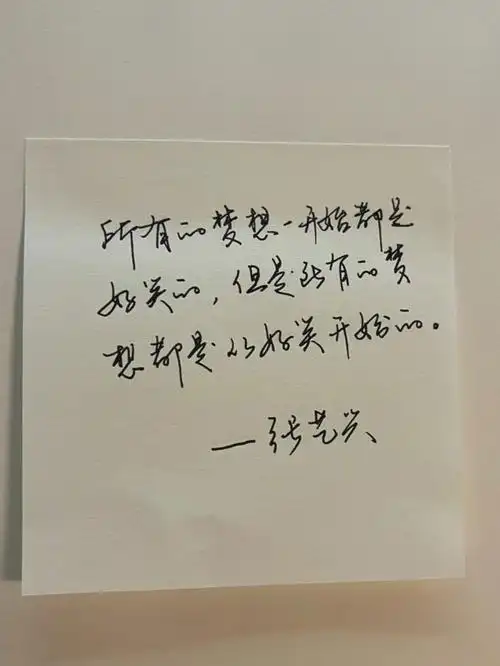 所有的梦想一开始都是
好笑的，但是所有的梦
想都是以好笑开始的。
—张艺兴